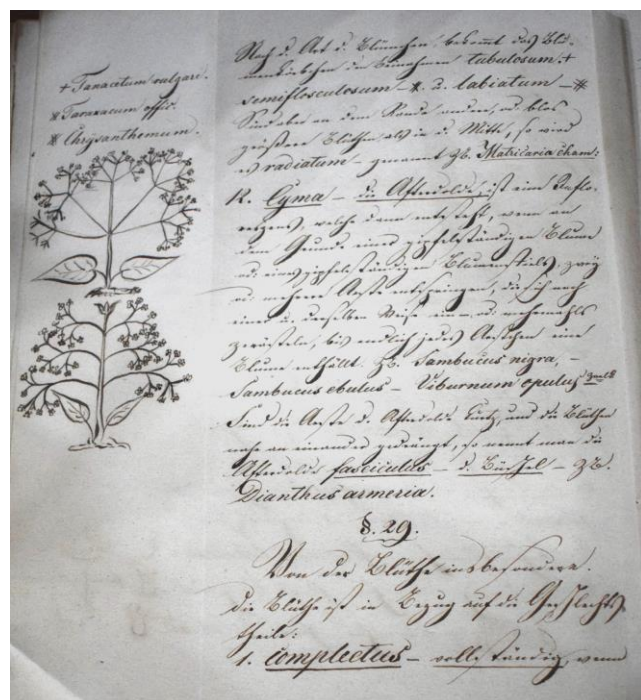 + Tanacetum vulgare.
※ Taraxacum offic.
※ Chrysanthemum.
Nach d. Art d. Blümchen bekommt das Blu-
menköbchen den Beinahmen tubulosum +
semiflosculosum – ※ u. labiatum – ※
Sind aber an dem Rande andere, od. blos
größere Blüthen als in d. Mitte, so wird
es radiatum – genannt zb. Matricaria cham:
k. Cyma – die Afterdolde, ist eine Inflo-
reszens, welche dann entsteht, wenn an
dem Grunde einer gipfelständigen Blume
od. eines gipfelständigen Blumenstiels zwey
od. mehrere Aeste entspringen, die sich nach
einer u. derselben Weise ein- od. mehrmahls
zerästeln, bis endlich jedes Aestchen eine
Blume enthält. Zb. Sambucus nigra, –
Sambucus ebulus – Viburnum opulus
Sind die Aeste d. Afterdolde kurz, und die Blüthen
nahe an einander gedrängt, so nennt man die
Afterdolde fasciculus – d. Büschel – zb.
Dianthus armeria.
§. 29.
Von der Blüthe insbesondere.
Die Blüthe ist in Bezug auf die Geschlechts
theile:
1. complectus – vollständig, wenn